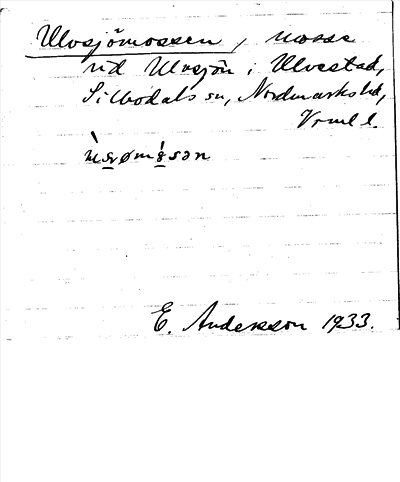 Ulvsjömossen, mosse
vid Ulvsjön i Ulvestad,
Silbodals sn, Nordmarks hd,
Vrml l.
E. Andersson 1933.